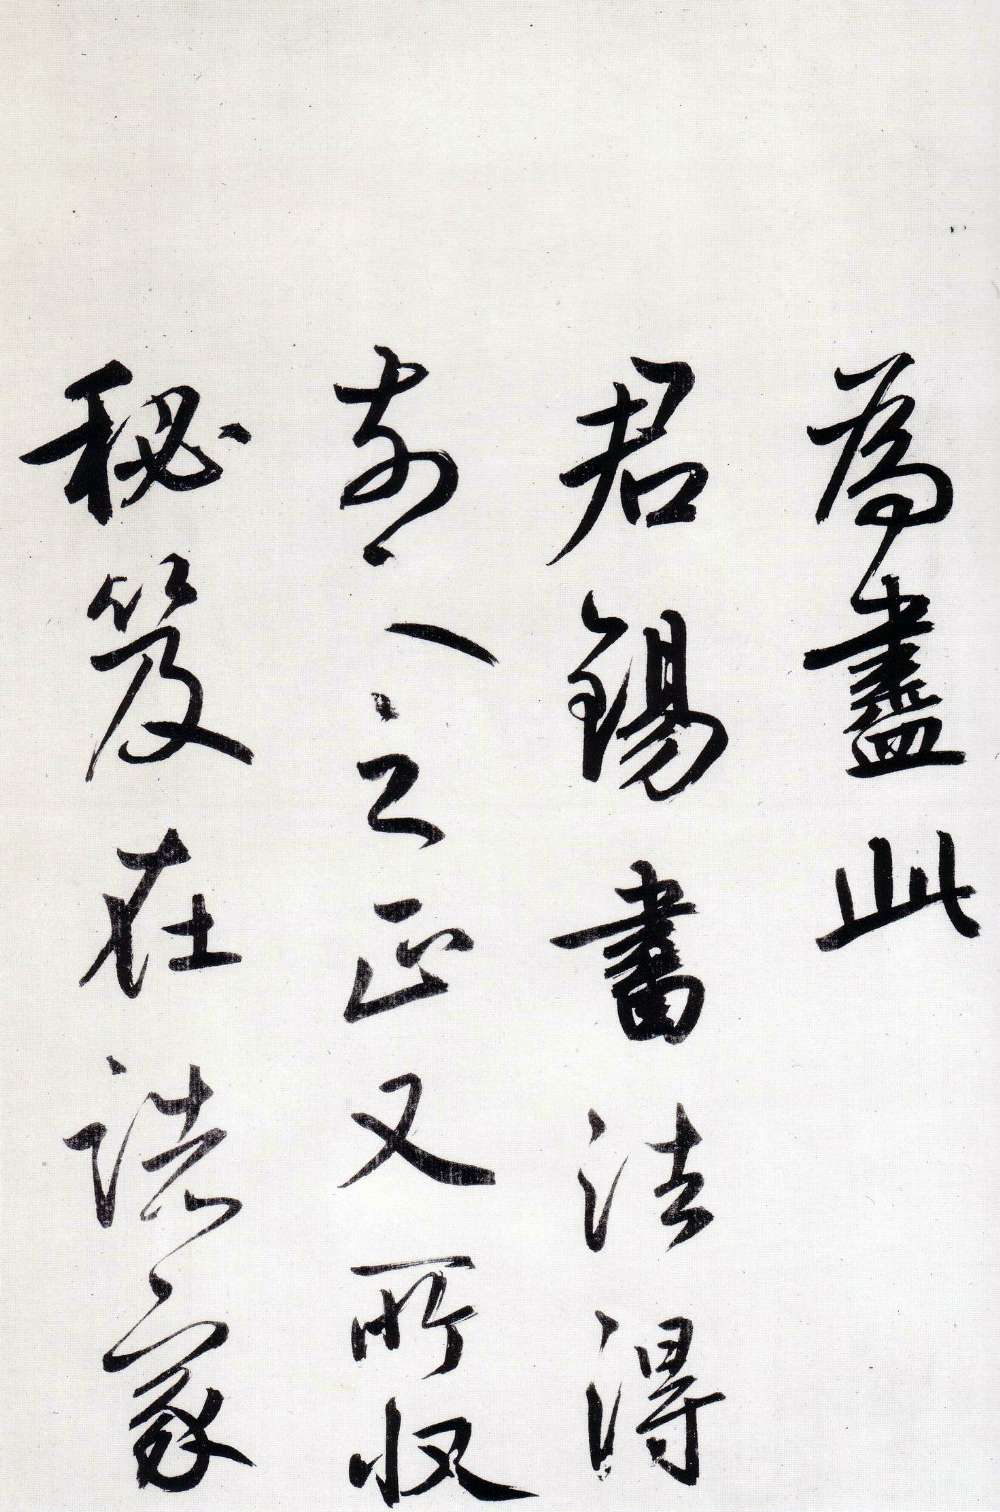 為盡此
君錫書法得
前人之正又所収
秘笈在諸家